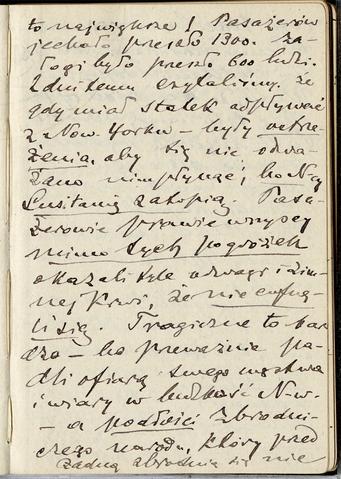 to największe! Pasażerów
jechało przeszło 1300. Za-
łogi było przeszło 600 ludzi.
2 dni temu czytaliśmy, że
gdy miał statek odpływać
z Now. Yorku – były ostrze-
żenia, aby się nie odwa-
żano nim płynąć, bo N-cy
Lusitanię zatopią. Pasa-
żerowie prawie wszyscy
mimo tych pogróżek
okazali tyle odwagi i zim-
nej krwi, że nie cofnę-
li się. Tragiczne to bar
dzo – bo przeważnie pa-
dli ofiarą swego męstwa
i wiary w ludzkość N-w.
– a podłości zbrodni-
czego narodu, który przed
żadną zbrodnią się nie